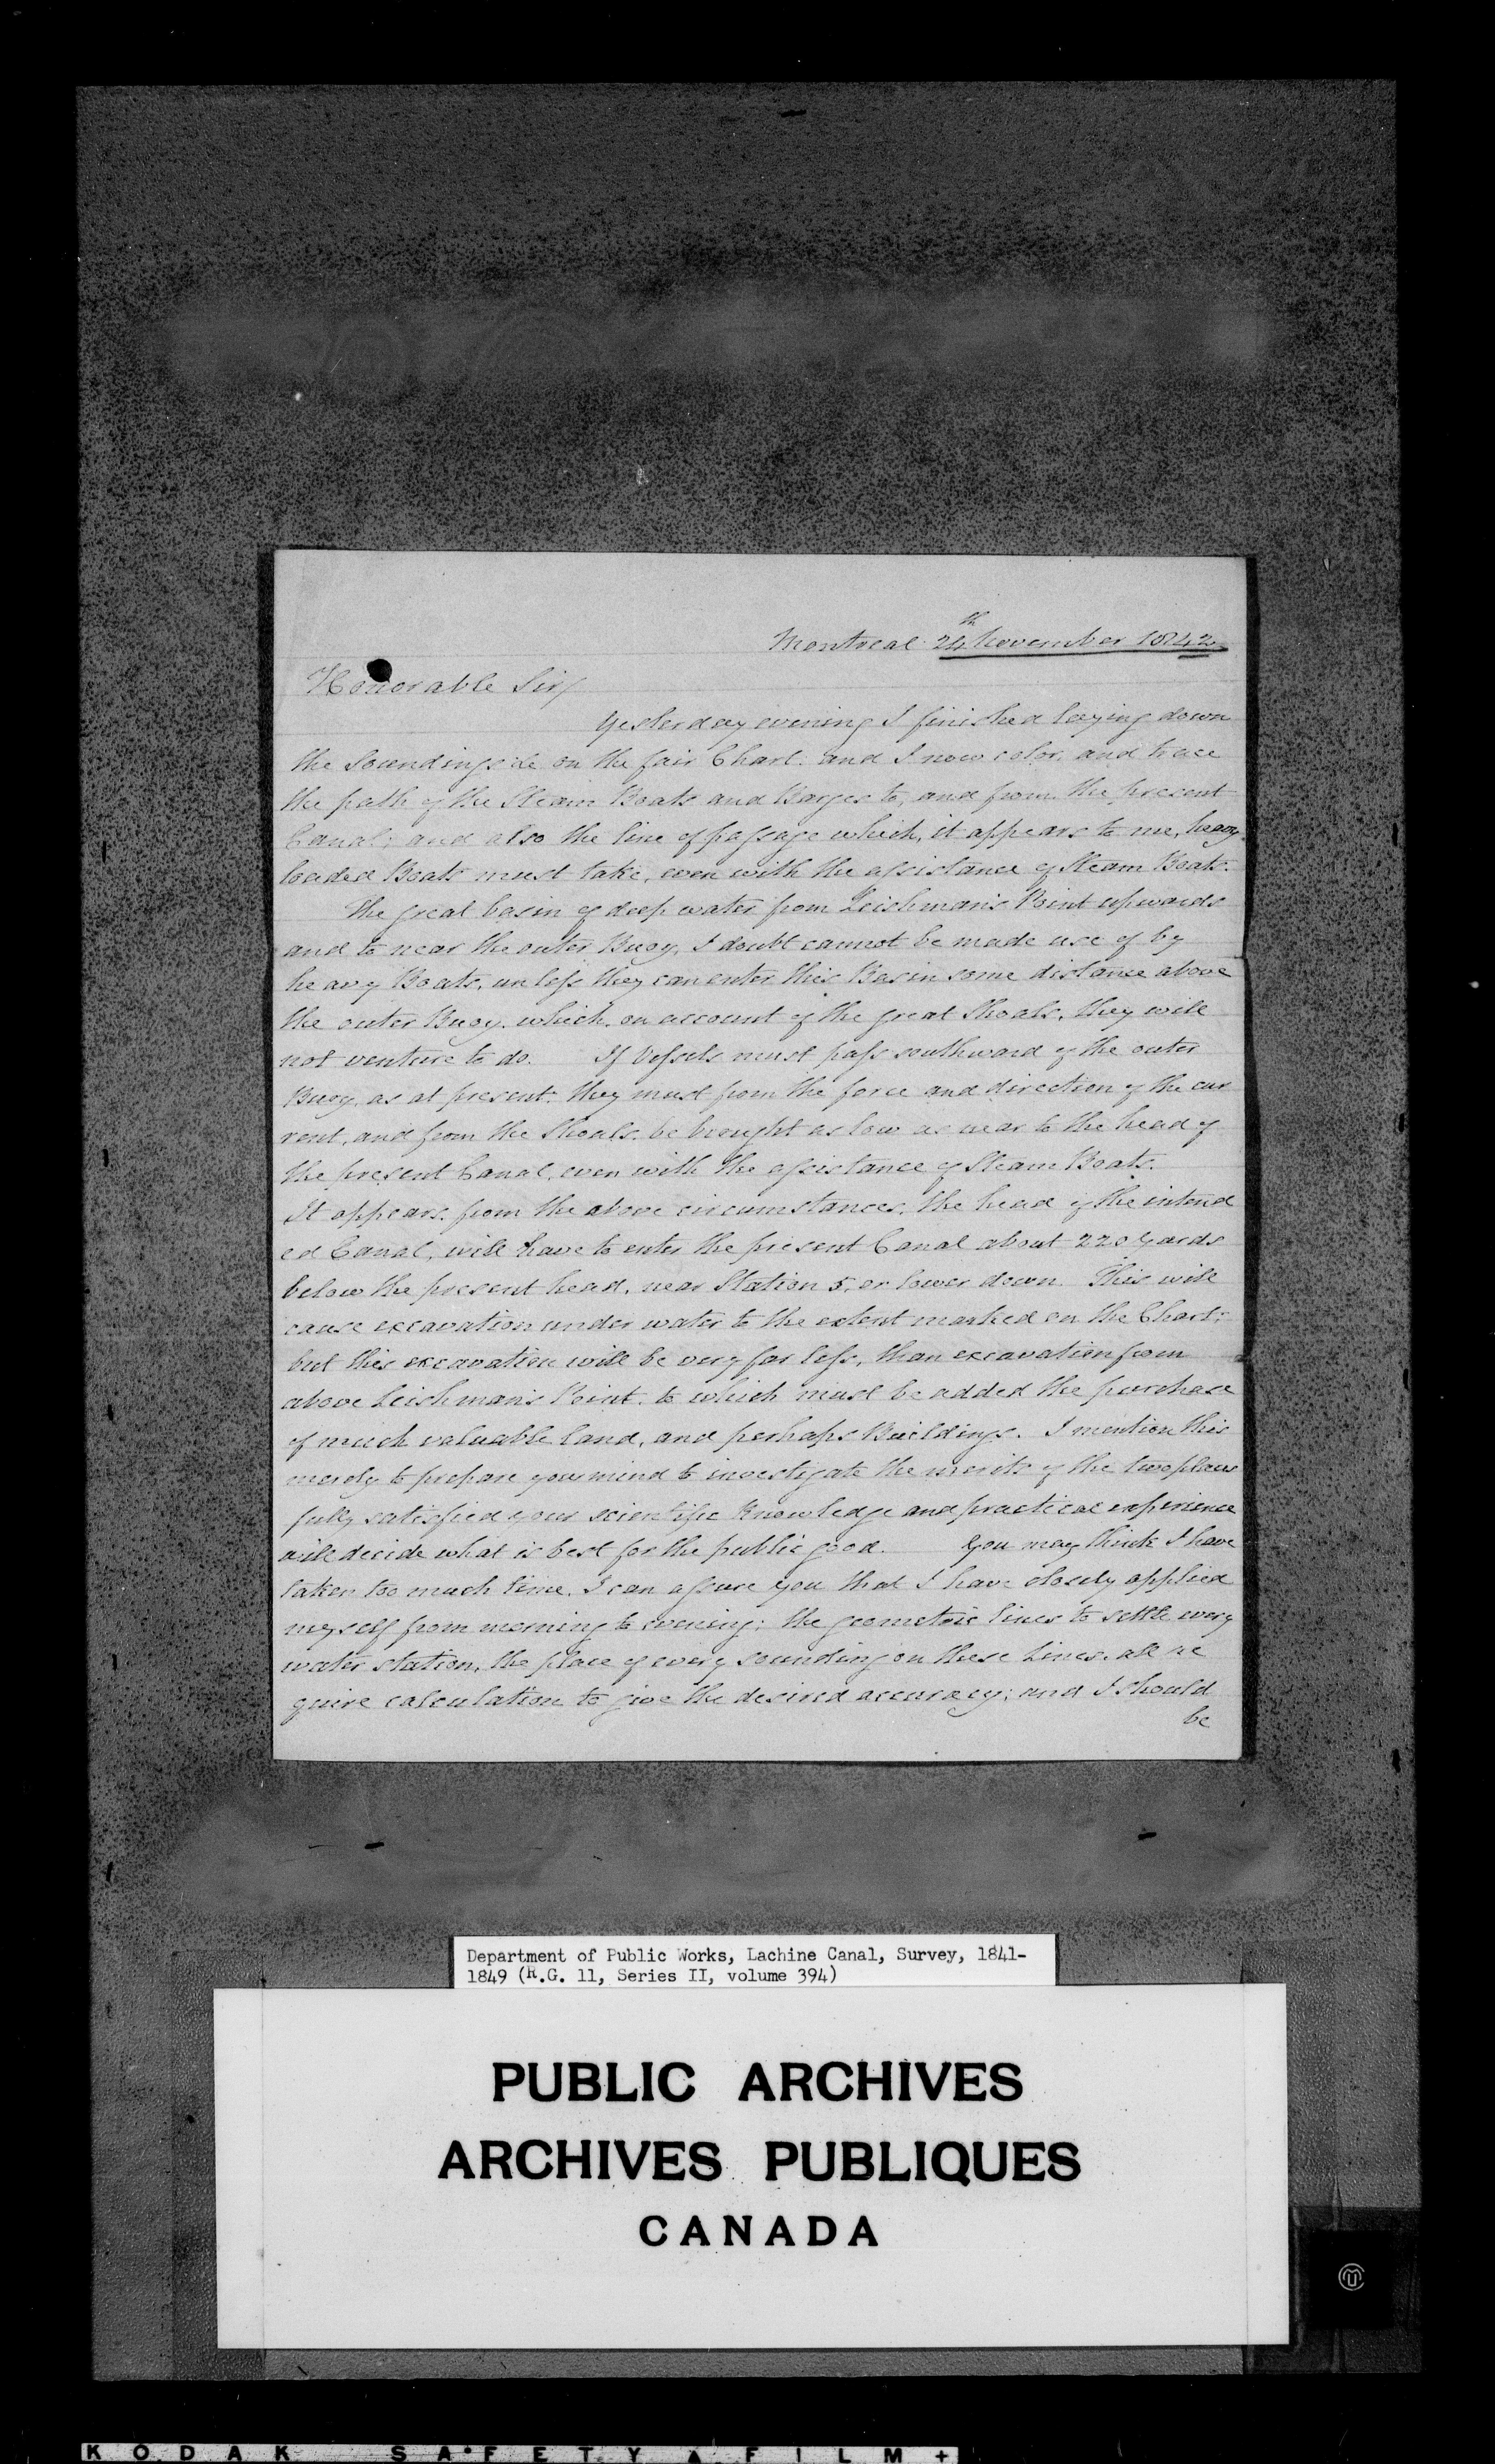 Montreal 24th November 1842
Honorable Sir/
Yesterday evening I finished laying down
the Soundings &c on the fair Chart. and I now color, and trace
the path of the Steam Boats and Barges to, and from the present
Canal; and also the line of passage which, it appears to me, heavy
loaded Boats must take, even with the assistance of Steam Boats.
The great basin of deep water from Leishman's Point upwards
and to near the outer Buoy, I doubt cannot be made use of by
heavy Boats, unless they can enter this Basin some distance above
the outer Buoy, which, on account of the great Shoals, they will
not venture to do. If Vessels must pass southward of the outer
Buoy, as at present, they must from the force and direction of the cur
rent, and from the Shoals, be brought as low as near to the head of
the present Canal, even with the assistance of Steam Boats.
It appears, from the above circumstances, the head of the intend
ed Canal, will have to enter the present Canal about 220 yards
below the present head, near Station 5, or lower down. This will
cause excavation under water to the extent marked on the Chart;
but this excavation will be very far less, than excavation from
above Leishman's Point, to which must be added the purchase
of much valuable land, and perhaps Buildings. I mention this
merely to prepare your mind to investigate the merits of the two plans
fully satisfied your scientific Knowledge and practical experience
will decide what is best for the public good. You may think I have
taken too much time, I can assure you that I have closely applied
myself from morning to evening; the geometric lines to settle every
water station, the place of every sounding on these Lines, all re
quire calculation to give the desired accuracy; and I should
be
Department of Public Works, Lachine Canal, Survey, 1841-
1849 (R.G. 11, Series II, volume 394)
PUBLIC ARCHIVES
ARCHIVES PUBLIQUES
CANADA
KODAK SAFETY FILM +